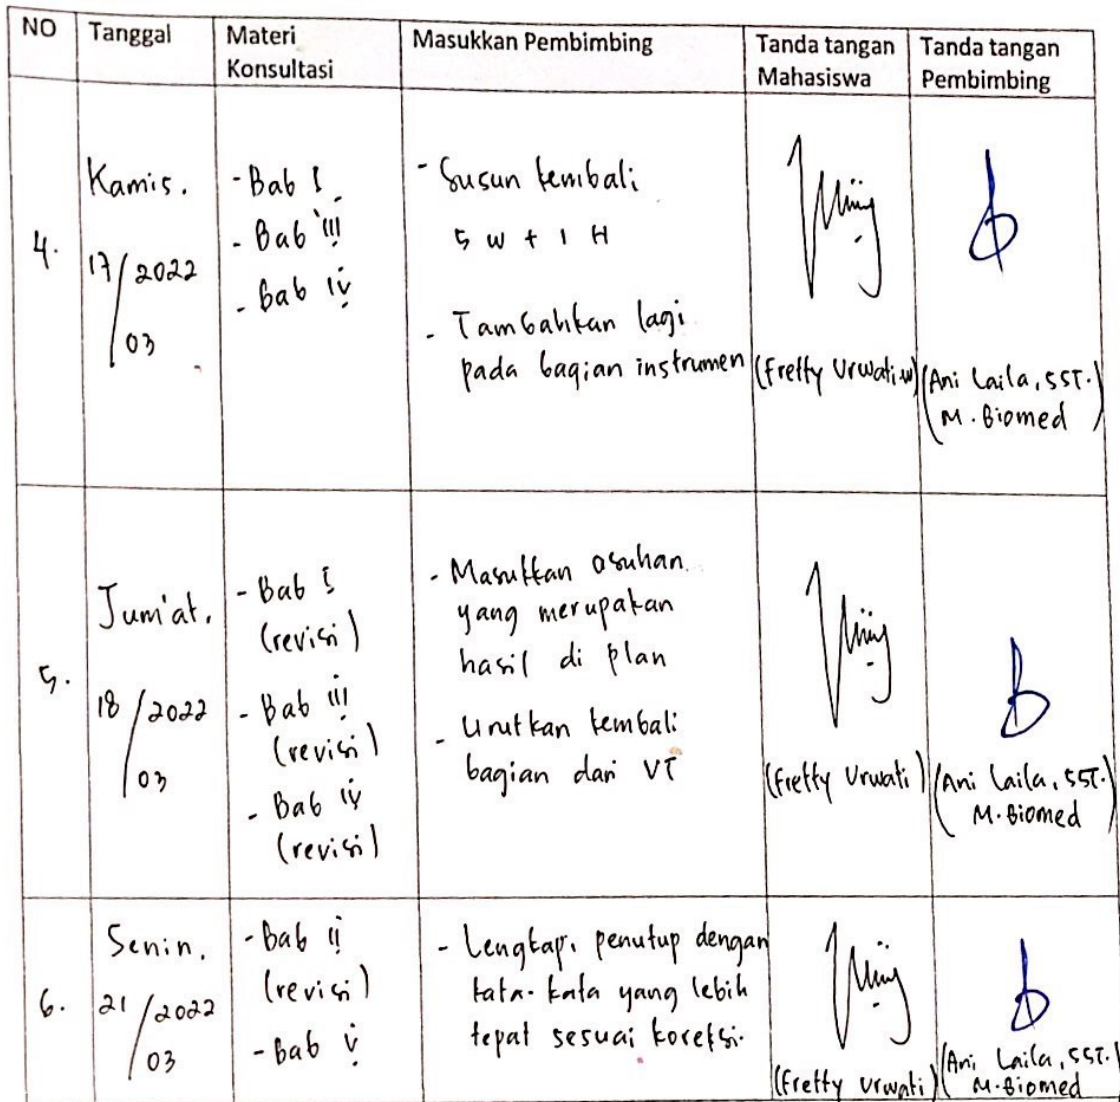 NO Tanggal Materi Konsultasi Masukkan Pembimbing Tanda tangan Mahasiswa Tanda tangan Pembimbing
4.
Kamis.
17/2022
/03
- Bab I
- Bab III
- Bab IV
- Susun kembali
5 W + 1 H
- Tambahkan lagi
pada bagian instrumen
(Fretty Urwati.w)
(Ani Laila, SST.
M. Biomed)
5.
Jum'at.
18/2022
/03
- Bab I
(revisi)
- Bab III
(revisi)
- Bab IV
(revisi)
- Masukkan asuhan
yang merupakan
hasil di plan
- Urutkan kembali
bagian dari VT
(Fretty Urwati)
(Ani Laila, SST.
M. Biomed)
6.
Senin.
21/2022
/03
- Bab II
(revisi)
- Bab V
- Lengkapi penutup dengan
kata-kata yang lebih
tepat sesuai koreksi.
(Fretty Urwati)
(Ani Laila, SST.
M. Biomed)